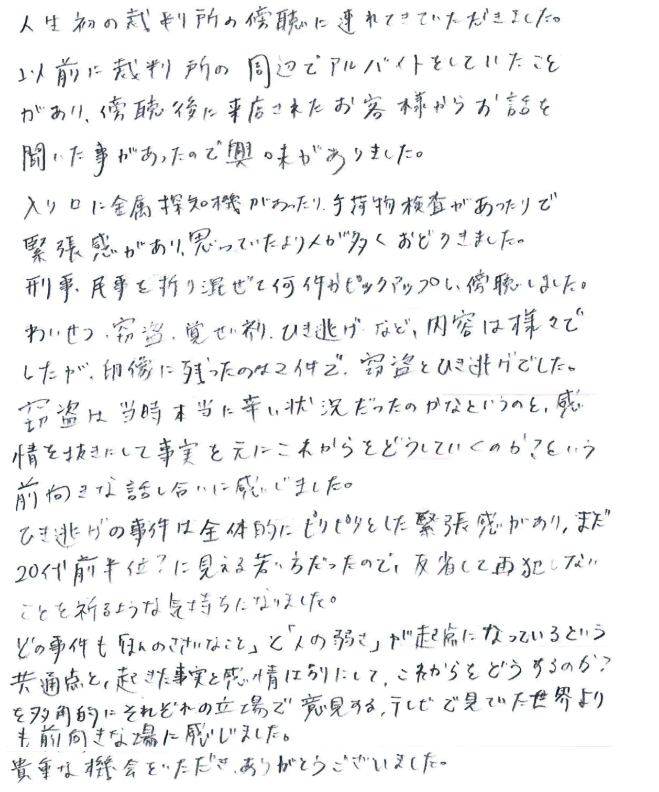 人生初の裁判所の傍聴に連れてきていただきました。
以前に裁判所の周辺でアルバイトをしていたこと
があり、傍聴後に来店されたお客様からお話を
聞いた事があったので興味がありました。
入り口に金属探知機があったり、手荷物検査があったりで
緊張感があり、思っていたより人が多くおどろきました。
刑事、民事を折り混ぜて何件かピックアップし、傍聴しました。
わいせつ、窃盗、覚せい剤、ひき逃げなど、内容は様々で
したが、印像に残ったのは2件で、窃盗とひき逃げでした。
窃盗は当時本当に辛い状況だったのかなというのと、感
情を抜きにして事実を元にこれからをどうしていくのか?という
前向きな話し合いに感じました。
ひき逃げの事件は全体的にピリピリとした緊張感があり、まだ
20代前半位?に見える若い方だったので、反省して再犯しない
ことを祈るような気持ちになりました。
どの事件も「ほんのささいなこと」と「人の弱さ」が起点になっているという
共通点と、起きた事実と感情は別にして、これからをどうするのか?
を多角的にそれぞれの立場で意見する、テレビで見ていた世界より
も前向きな場に感じました。
貴重な機会をいただき、ありがとうございました。